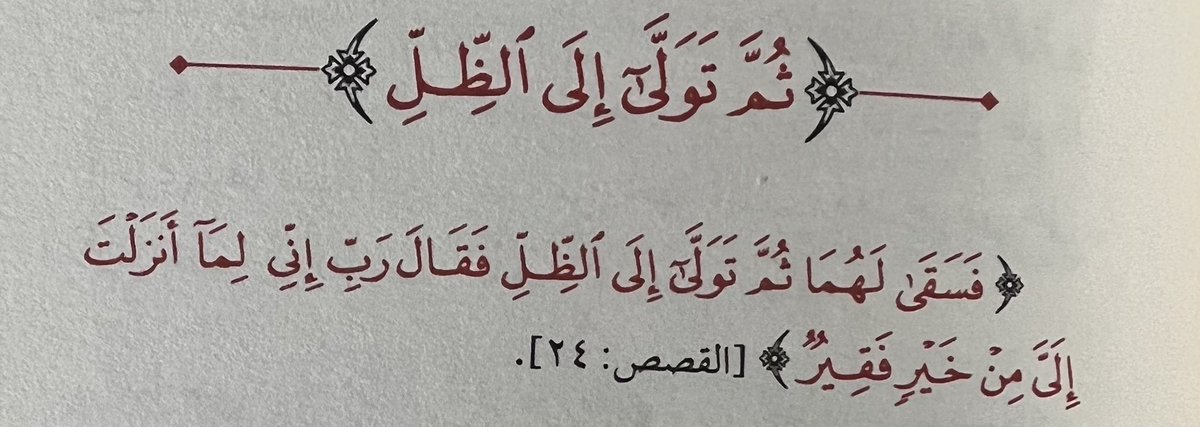 ﴿ثُمَّ تَوَلَّىٰٓ إِلَى ٱلظِّلِّ﴾
﴿فَسَقَىٰ لَهُمَا ثُمَّ تَوَلَّىٰٓ إِلَى ٱلظِّلِّ فَقَالَ رَبِّ إِنِّي لِمَآ أَنزَلۡتَ
إِلَيَّ مِنۡ خَيۡرٖ فَقِيرٞ﴾ [القصص: ٢٤].